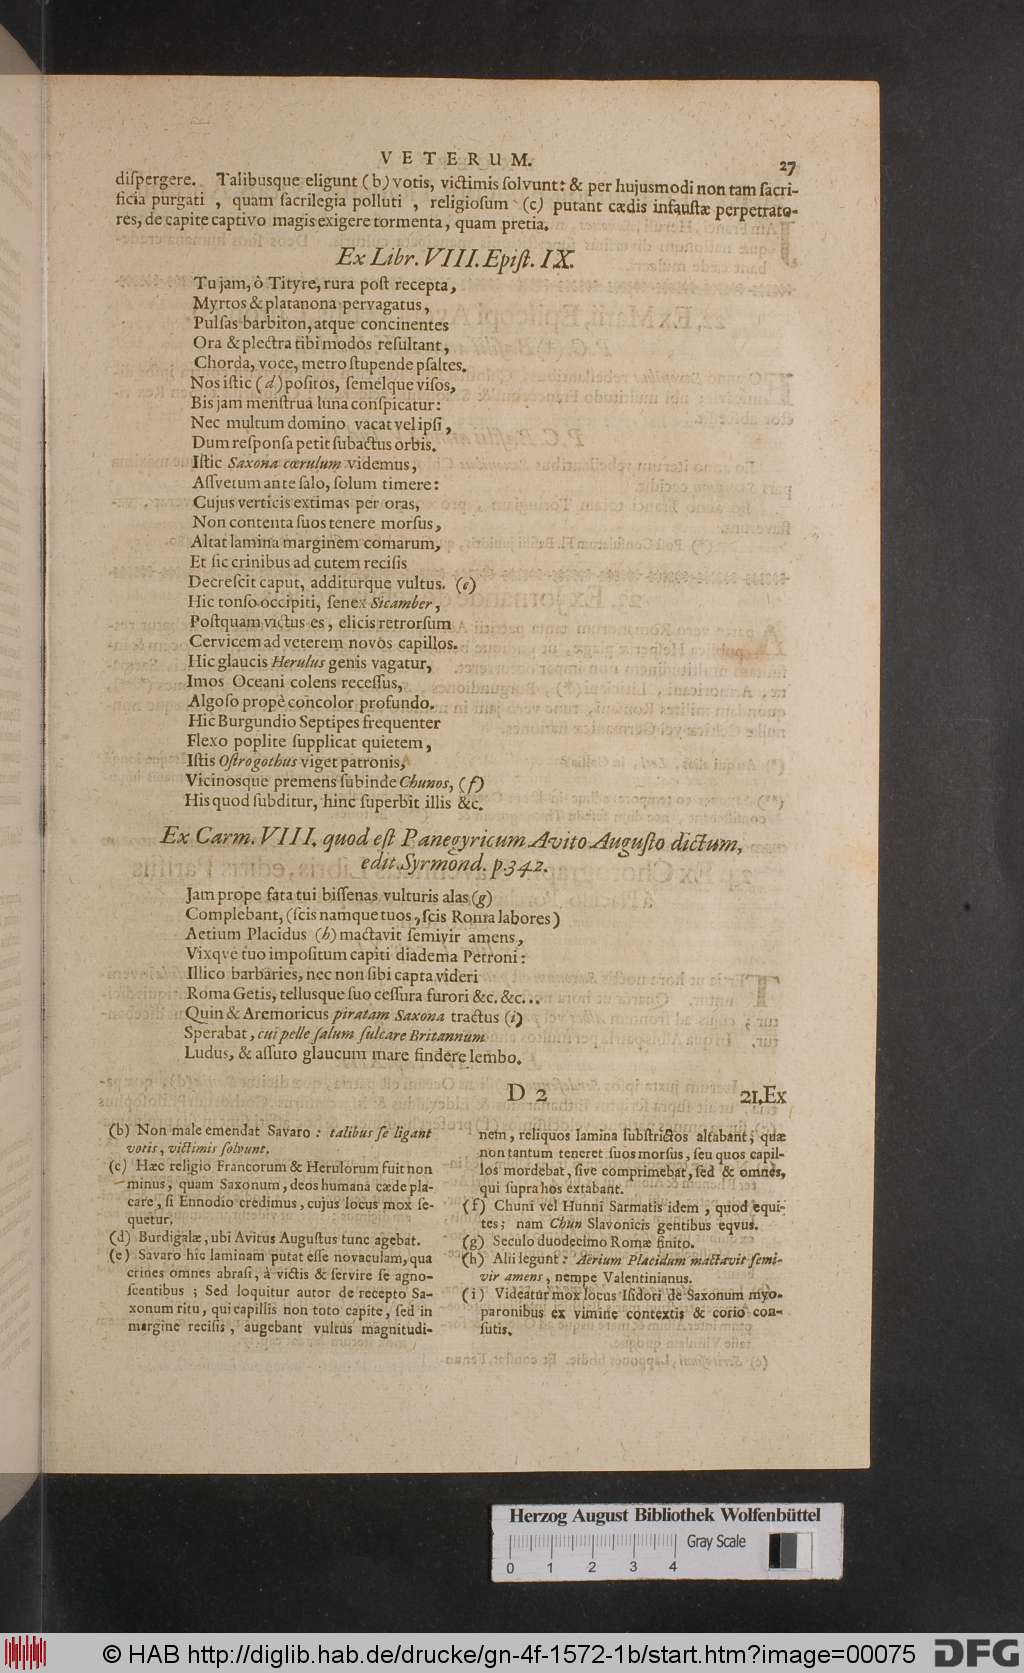 VETERUM. 27
diſpergere. Talibusque eligunt (b) votis, victimis ſolvunt: & per hujusmodi non tam ſacri-
ficia purgati , quam ſacrilegia polluti , religioſum (c) putant cædis infauſtæ perpetrato-
res, de capite captivo magis exigere tormenta, quam pretia.
Ex Libr. VIII. Epiſt. IX.
Tu jam, ò Tityre, rura poſt recepta,
Myrtos & platanona pervagatus,
Pulſas barbiton, atque concinentes
Ora & plectra tibi modos reſultant,
Chorda, voce, metro ſtupende pſaltes.
Nos iſtic (d) poſitos, ſemelque viſos,
Bis jam menſtrua luna conſpicatur:
Nec multum domino vacat vel ipſi,
Dum reſponſa petit ſubactus orbis.
Iſtic Saxona cœrulum videmus,
Aſſvetum ante ſalo, ſolum timere:
Cujus verticis extimas per oras,
Non contenta ſuos tenere morſus,
Altat lamina marginem comarum,
Et ſic crinibus ad cutem reciſis
Decreſcit caput, additurque vultus. (e)
Hic tonſo occipiti, ſenex Sicamber,
Poſtquam victus es, elicis retrorſum
Cervicem ad veterem novos capillos.
Hic glaucis Herulus genis vagatur,
Imos Oceani colens receſſus,
Algoſo propè concolor profundo.
Hic Burgundio Septipes frequenter
Flexo poplite ſupplicat quietem,
Iſtis Oſtrogothus viget patronis,
Vicinosque premens ſubinde Chunos, (f)
His quod ſubditur, hinc ſuperbit illis &c.
Ex Carm. VIII. quod eſt Panegyricum Avito Auguſto dictum,
edit. Syrmond. p. 342.
Jam prope fata tui biſſenas vulturis alas (g)
Complebant, (ſcis namque tuos, ſcis Roma labores)
Aetium Placidus (h) mactavit ſemivir amens,
Vixqve tuo impoſitum capiti diadema Petroni:
Illico barbaries, nec non ſibi capta videri
Roma Getis, tellusque ſuo ceſſura furori &c. &c...
Quin & Aremoricus piratam Saxona tractus (i)
Sperabat, cui pelle ſalum ſulcare Britannum
Ludus, & aſſuto glaucum mare findere lembo.
D 2 21. Ex
(b) Non male emendat Savaro : talibus ſe ligant
votis, victimis ſolvunt.
(c) Hæc religio Francorum & Herulorum fuit non
minus, quam Saxonum, deos humana cæde pla-
care, ſi Ennodio credimus, cujus locus mox ſe-
quetur.
(d) Burdigalæ, ubi Avitus Auguſtus tunc agebat.
(e) Savaro hic laminam putat eſſe novaculam, qua
crines omnes abraſi, à victis & ſervire ſe agno-
ſcentibus ; Sed loquitur autor de recepto Sa-
xonum ritu, qui capillis non toto capite, ſed in
margine reciſis, augebant vultus magnitudi-
nem, reliquos lamina ſubſtrictos altabant; quæ
non tantum teneret ſuos morſus, ſeu quos capil-
los mordebat, ſive comprimebat, ſed & omnes,
qui ſupra hos extabant.
(f) Chuni vel Hunni Sarmatis idem, quod equi-
tes; nam Chun Slavonicis gentibus eqvus.
(g) Seculo duodecimo Romæ finito.
(h) Alii legunt : Aërium Placidum mactavit ſemi-
vir amens, nempe Valentinianus.
(i) Videatur mox locus Iſidori de Saxonum myo-
paronibus ex vimine contextis & corio con-
ſutis.
Herzog August Bibliothek Wolfenbüttel
Gray Scale
0 1 2 3 4
© HAB http://diglib.hab.de/drucke/gn-4f-1572-1b/start.htm?image=00075
DFG